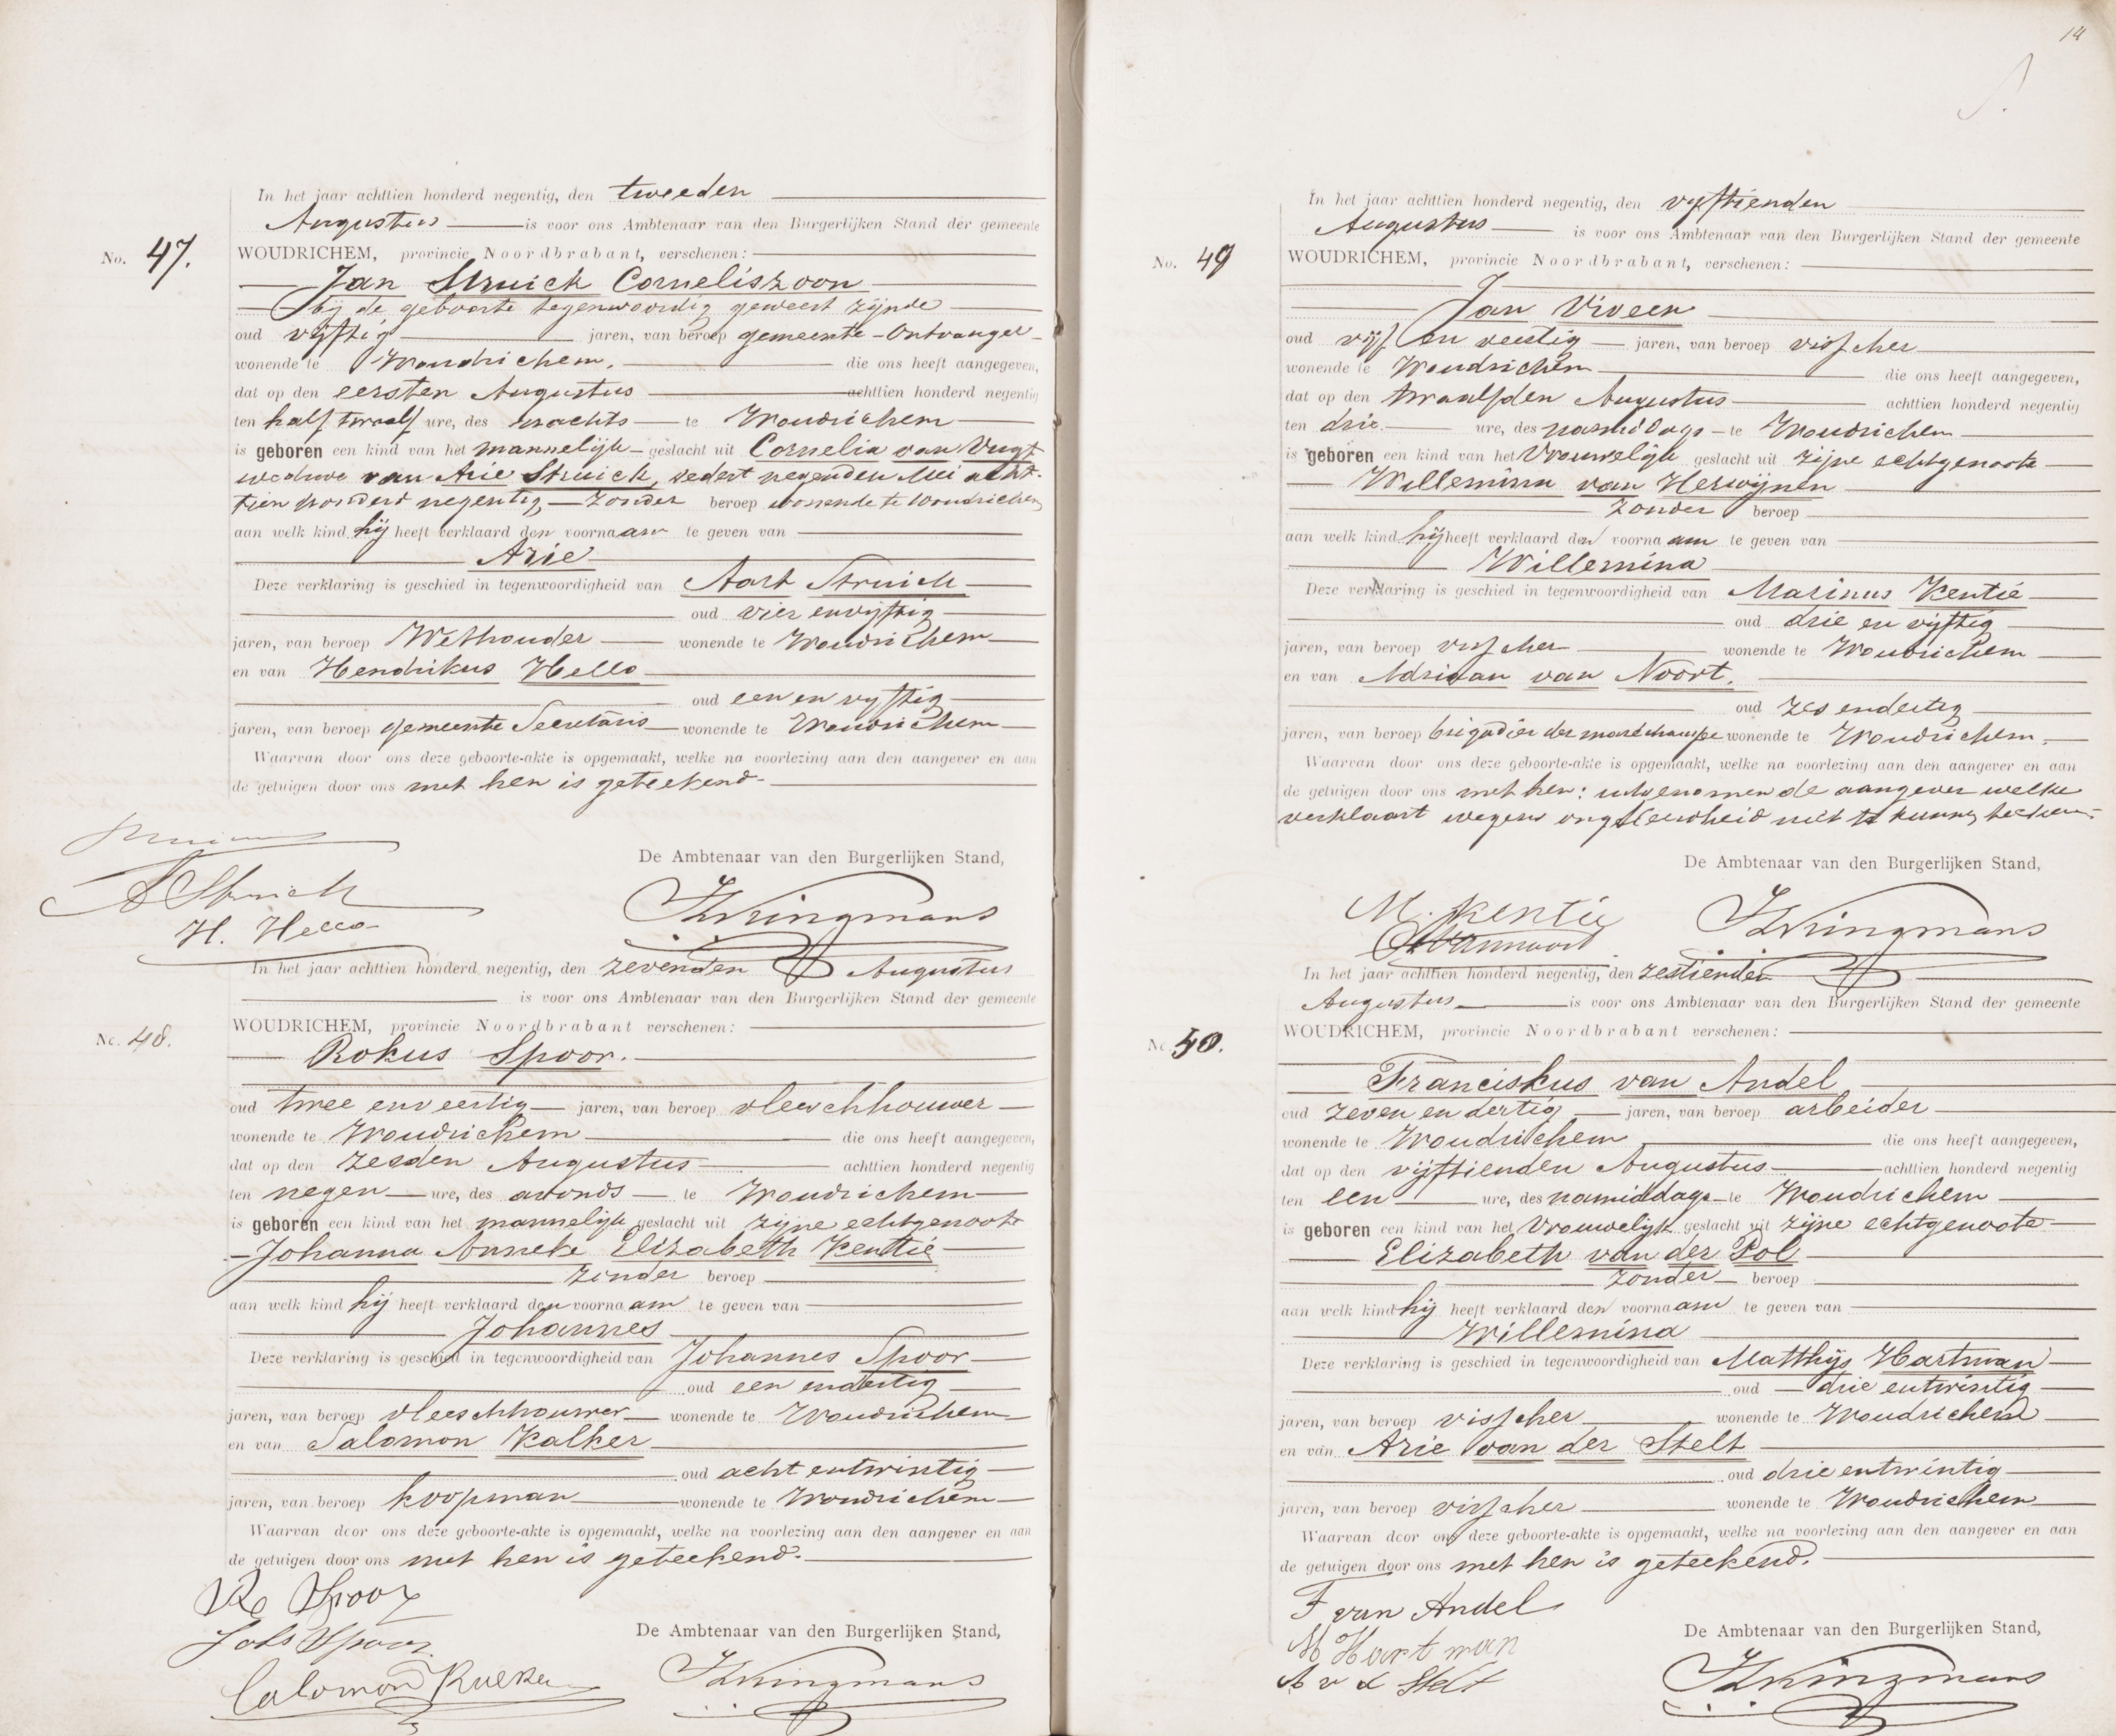 In het jaar achttien honderd negentig, den tweeden
Augustus is voor ons Ambtenaar van den Burgerlijken Stand der gemeente
No. 47. WOUDRICHEM, provincie Noordbrabant, verschenen:
Jan Struick Corneliszoon
bij de geboorte tegenwoordig geweest zijnde
oud vijftig jaren, van beroep gemeente-Ontvanger
wonende te Woudrichem. die ons heeft aangegeven,
dat op den eersten Augustus achttien honderd negentig
ten half twaalf ure, des nachts te Woudrichem
is geboren een kind van het mannelijk geslacht uit Cornelia van Vugt
weduwe van Arie Struick, sedert negenden Mei acht-
tien honderd negentig, zonder beroep wonende te Woudrichem
aan welk kind hij heeft verklaard den voornaam te geven van
Arie
Deze verklaring is geschied in tegenwoordigheid van Aart Struick
oud vier en vijftig
jaren, van beroep Wethouder wonende te Woudrichem
en van Hendrikus Hello
oud een en vijftig
jaren, van beroep gemeente Secretaris wonende te Woudrichem
Waarvan door ons deze geboorte-akte is opgemaakt, welke na voorlezing aan den aangever en aan
de getuigen door ons met hen is geteekend.
De Ambtenaar van den Burgerlijken Stand,
A Struick
H. Hello
In het jaar achttien honderd negentig, den zevenden Augustus
is voor ons Ambtenaar van den Burgerlijken Stand der gemeente
No. 48. WOUDRICHEM, provincie Noordbrabant verschenen:
Rokus Spoor.
oud twee en veertig jaren, van beroep vleeschhouwer
wonende te Woudrichem die ons heeft aangegeven,
dat op den zesden Augustus achttien honderd negentig
ten negen ure, des avonds te Woudrichem
is geboren een kind van het mannelijk geslacht uit zijne echtgenoote
Johanna Anneke Elizabeth Kentie
zonder beroep
aan welk kind hij heeft verklaard den voornaam te geven van
Johannes
Deze verklaring is geschied in tegenwoordigheid van Johannes Spoor
oud een en dertig
jaren, van beroep vleeschhouwer wonende te Woudrichem
en van Salomon Kalker
oud acht en twintig
jaren, van beroep koopman wonende te Woudrichem
Waarvan door ons deze geboorte-akte is opgemaakt, welke na voorlezing aan den aangever en aan
de getuigen door ons met hen is geteekend.
Ro Spoor
Johs Spoor
De Ambtenaar van den Burgerlijken Stand,
Salomon Kalker
14
In het jaar achttien honderd negentig, den vyftienden
Augustus is voor ons Ambtenaar van den Burgerlijken Stand der gemeente
No. 49 WOUDRICHEM, provincie Noordbrabant, verschenen:
Jan Viveen
oud vijf en veertig jaren, van beroep visscher
wonende te Woudrichem die ons heeft aangegeven,
dat op den twaalfden Augustus achttien honderd negentig
ten drie ure, des namiddags te Woudrichem
is geboren een kind van het Vrouwelijk geslacht uit zijne echtgenoote
Willemina van Herwijnen
zonder beroep
aan welk kind hij heeft verklaard den voornaam te geven van
Willemina
Deze verklaring is geschied in tegenwoordigheid van Marinus Kentie
oud drie en vijftig
jaren, van beroep visscher wonende te Woudrichem
en van Adriaan van Noort.
oud zes en dertig
jaren, van beroep brigadier der wonende te Woudrichem.
Waarvan door ons deze geboorte-akte is opgemaakt, welke na voorlezing aan den aangever en aan
de getuigen door ons met hen: uitgenomen de aangever welke
verklaart wegens ongeleerdheid niet te kunnen teekenen.
De Ambtenaar van den Burgerlijken Stand,
M. Kentie
In het jaar achttien honderd negentig, den zestienden
Augustus is voor ons Ambtenaar van den Burgerlijken Stand der gemeente
No 50. WOUDRICHEM, provincie Noordbrabant verschenen:
Franciskus van Andel
oud zeven en dertig jaren, van beroep arbeider
wonende te Woudrichem die ons heeft aangegeven,
dat op den vijftienden Augustus achttien honderd negentig
ten een ure, des namiddags te Woudrichem
is geboren een kind van het Vrouwelijk geslacht uit zijne echtgenoote
Elizabeth van der Pol
zonder beroep
aan welk kind hij heeft verklaard den voornaam te geven van
Willemina
Deze verklaring is geschied in tegenwoordigheid van Matthijs Hartman
oud drie en twintig
jaren, van beroep visscher wonende te Woudrichem
en van Arie van der Stelt
oud drie en twintig
jaren, van beroep visscher wonende te Woudrichem
Waarvan door ons deze geboorte-akte is opgemaakt, welke na voorlezing aan den aangever en aan
de getuigen door ons met hen is geteekend.
F van Andel
De Ambtenaar van den Burgerlijken Stand,
M Hartman
A v d Stelt